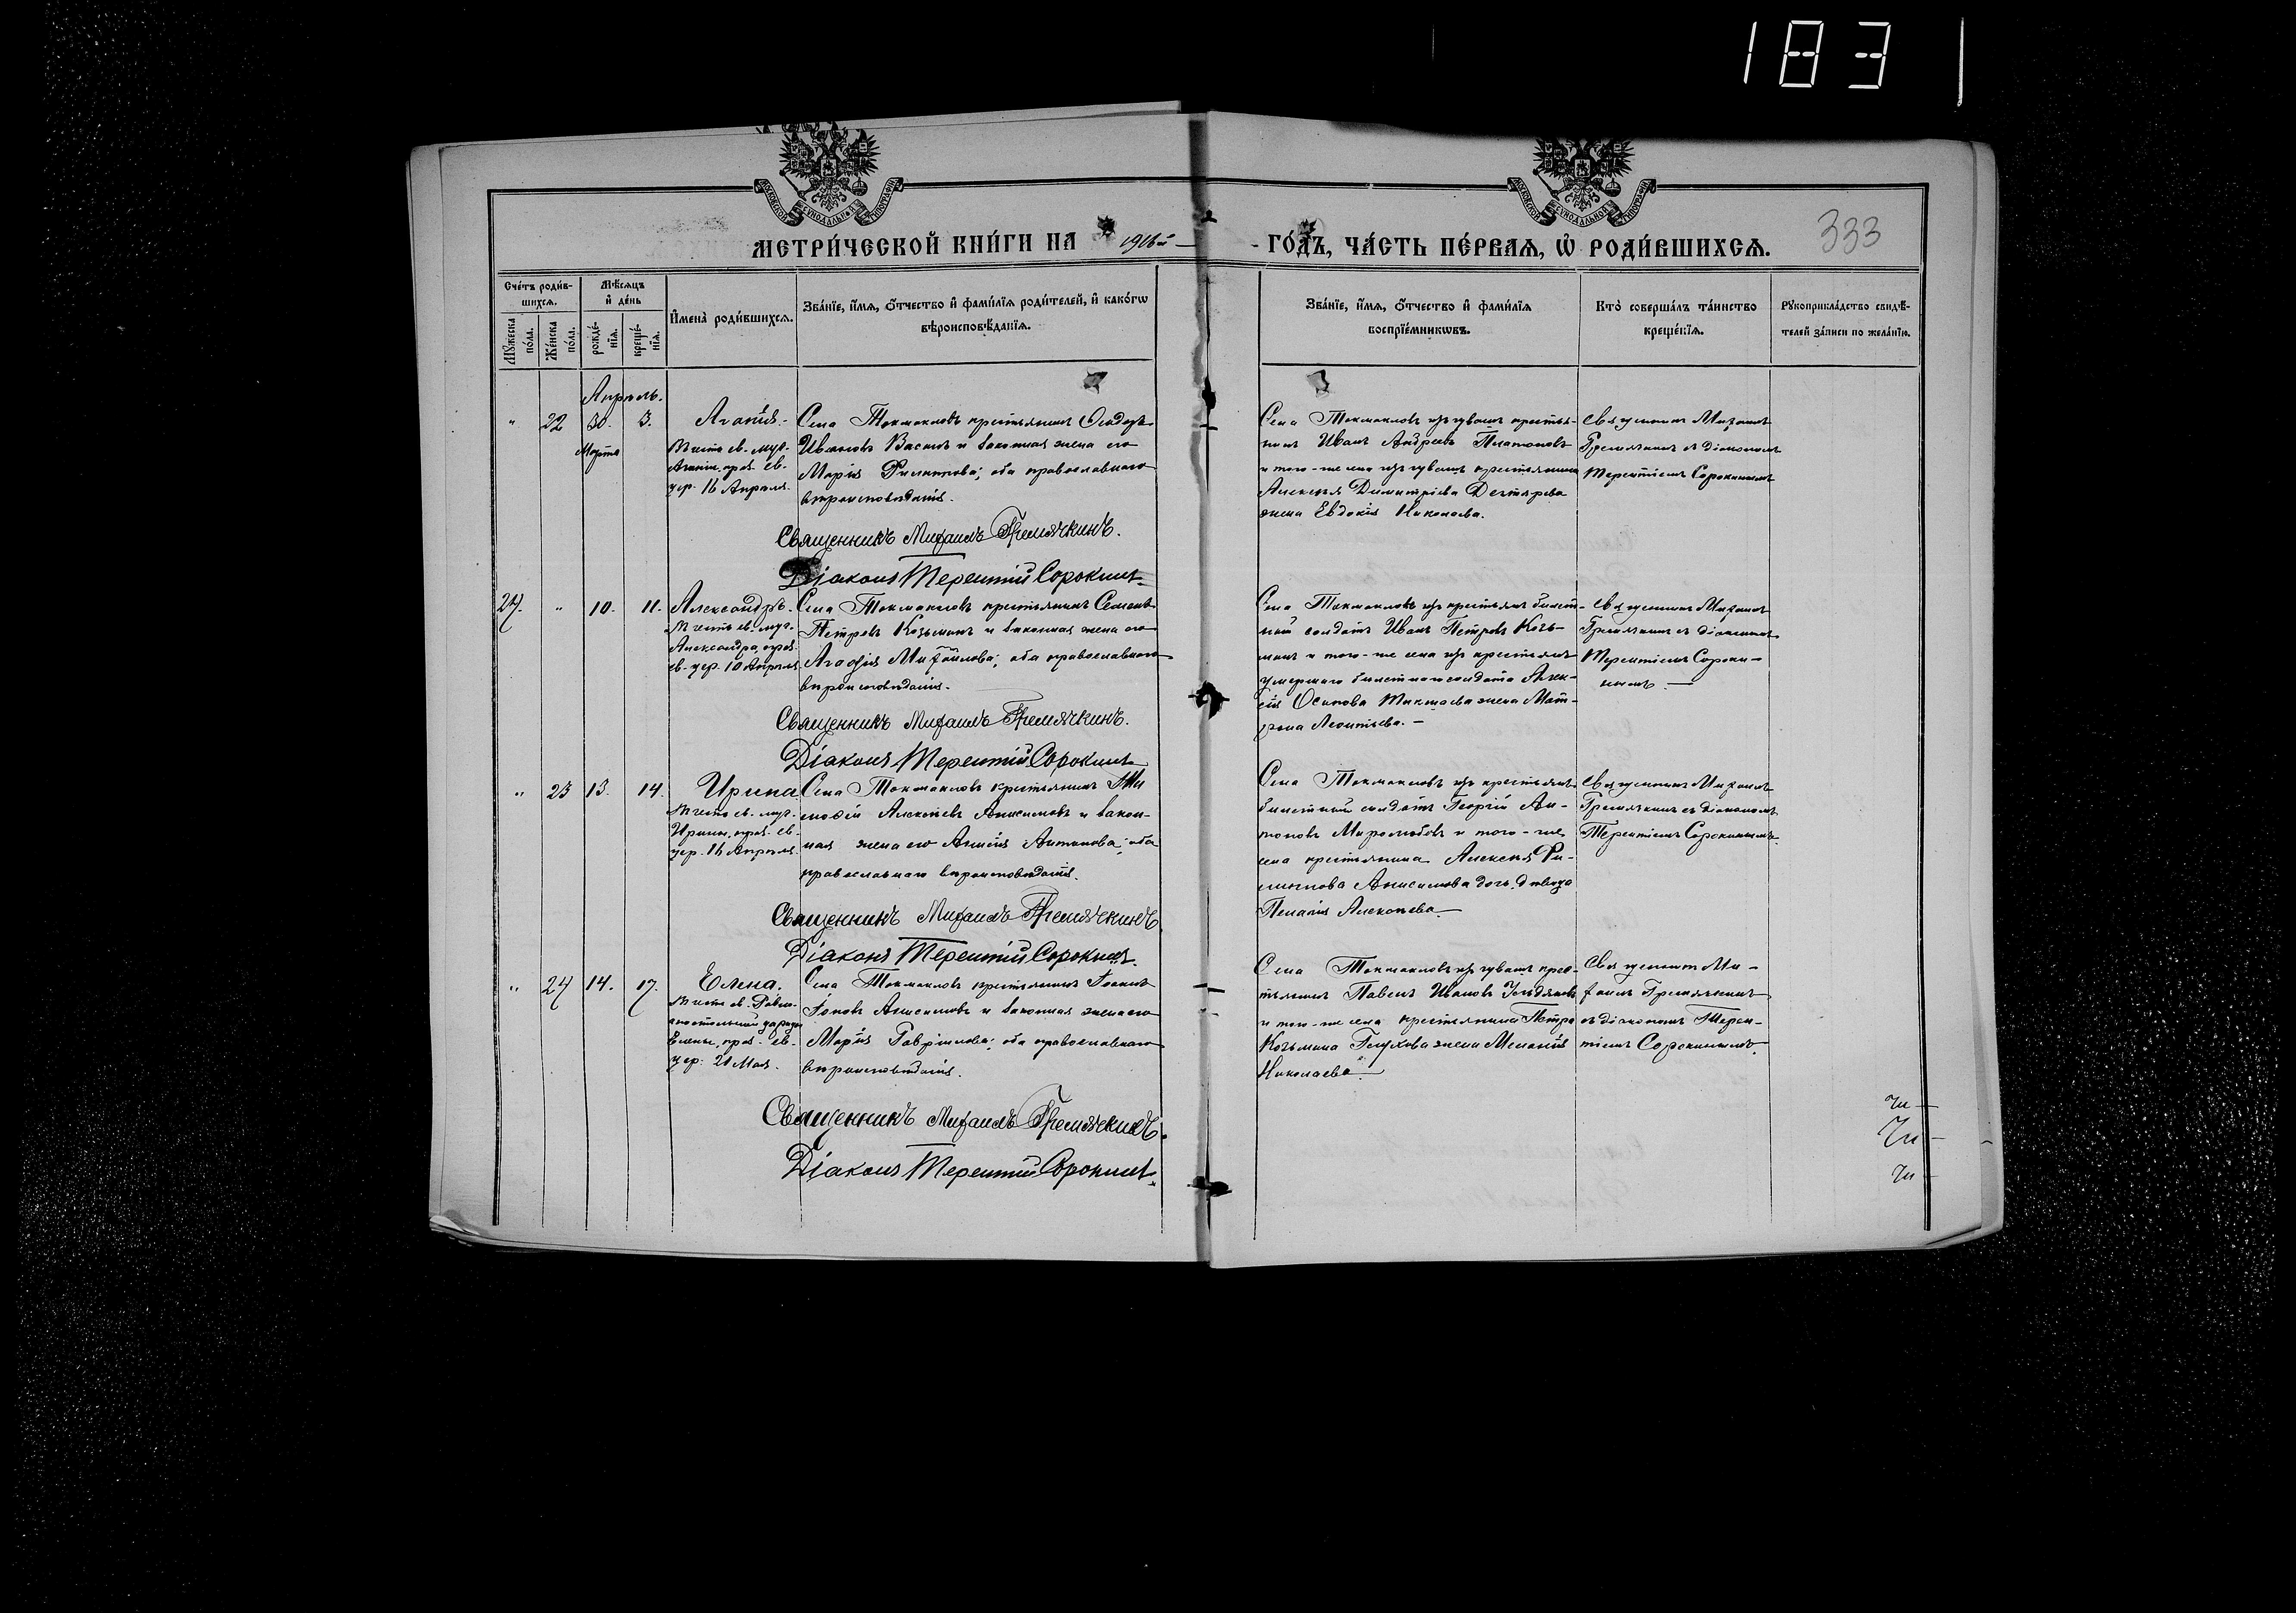 183
МЕТРИ́ЧЕСКОЙ КНИ́ГИ НА 1916й ГО́ДЪ, ЧА́СТЬ ПЕ́РВАѦ, Ѡ҆ РОДИ́ВШИХСѦ.
333
Сче́тъ роди́в-
шихсѧ.
Мꙋ́жеска по́ла.
Же́нска по́ла.
Мѣ́сѧцъ и҆ де́нь
рожде́-
нїѧ.
креще́-
нїѧ.
И҆мена̀ роди́вшихсѧ.
Зва́нїе, и҆́мѧ, ѻ҆́тчество и҆ фами́лїѧ роди́телей, и҆ како́гѡ
вѣроисповѣ́данїѧ.
Зва́нїе, и҆́мѧ, ѻ҆́тчество и҆ фами́лїѧ
воспрїе́мникѡвъ.
Кто̀ соверша́лъ та́инство
креще́нїѧ.
Рꙋкоприкла́дство свидѣ́-
телей за́писи по жела́нїю.
Апрѣль.
" 22 30. 3.
Марта
Агапія.
Въ честь св. муч.
Агапіи, праз. св.
цер. 16 Апрѣля.
Села Токмакловъ крестьянинъ Ѳеодоръ
Ивановъ Васинъ и законная жена его
Марія Филиппова; оба православнаго
вѣроисповѣданія.
Священникъ Михаилъ Гремячкинъ.
Діаконъ Терентій Сорокинъ.
Села Токмакловъ изъ чувашъ крестья-
нинъ Иванъ Андреевъ Платоновъ
и того-же села изъ чувашъ крестьянина
Алексѣя Димитріева Дегтярева
жена Евдокія Николаева.
Священникъ Михаилъ
Гремячкинъ съ діакономъ
Терентіемъ Сорокинымъ
24. " 10. 11.
Александръ.
Въ честь св. муч.
Александра, праз.
св. цер. 10 Апрѣля
Села Токмаклов крестьянинъ Семенъ
Петровъ Козьминъ и законная жена его
Агафія Михаилова; оба православнаго
вѣроисповѣданія.
Священникъ Михаилъ Гремячкинъ.
Діаконъ Терентій Сорокинъ
Села Токмаклов изъ крестьянъ билет-
ный солдатъ Иванъ Петровъ Козь-
минъ и того-же села изъ крестьянъ
умершаго билетнаго солдата Алек-
сѣя Осипова жена Мат-
рона Леонтьева.
Священникъ Михаилъ
Гремячкинъ съ діакономъ
Терентіемъ Сороки-
нымъ.
" 23 13. 14.
Ирина
Въ честь св. муч.
Ирины, праз. св.
цер. 16 Апрѣля.
Села Токмаклов крестьянинъ Ти
моѳій Алексѣевъ Анисимовъ и закон-
ная жена его Анисія Антонова; оба
православнаго вѣроисповѣданія.
Священникъ Михаилъ Гремячкинъ
Діаконъ Терентій Сорокинъ.
Села Токмаклов изъ крестьянъ
билетный солдатъ Георгій Ан-
тоновъ Миролюбовъ и того-же
села крестьянина Алексѣя Фи-
липпова Анисимова дочь, дѣвица
Пелагія Алексѣева.
Священникъ Михаилъ
Гремячкинъ съ діакономъ
Терентіемъ Сорокинымъ.
" 24 14. 17.
Елена.
Въ честь св. Равно-
апостольныя царицы
Елены, праз. св.
цер. 21 Мая.
Села Токмаклов крестьянинъ Іоаннъ
Анисимовъ и законная жена его
Марія Гавріилова; оба православнаго
вѣроисповѣданія.
Священникъ Михаилъ Гремячкинъ.
Діаконъ Терентій Сорокинъ.
Села Токмаклов изъ чувашъ крес-
тьянинъ Павелъ Ивановъ
и того-же села крестьянина Петра
Козьмина Глухова жена Меланія
Николаева.
Священникъ Ми-
хаилъ Гремячкинъ
съ діакономъ Терен-
тіемъ Сорокинымъ.